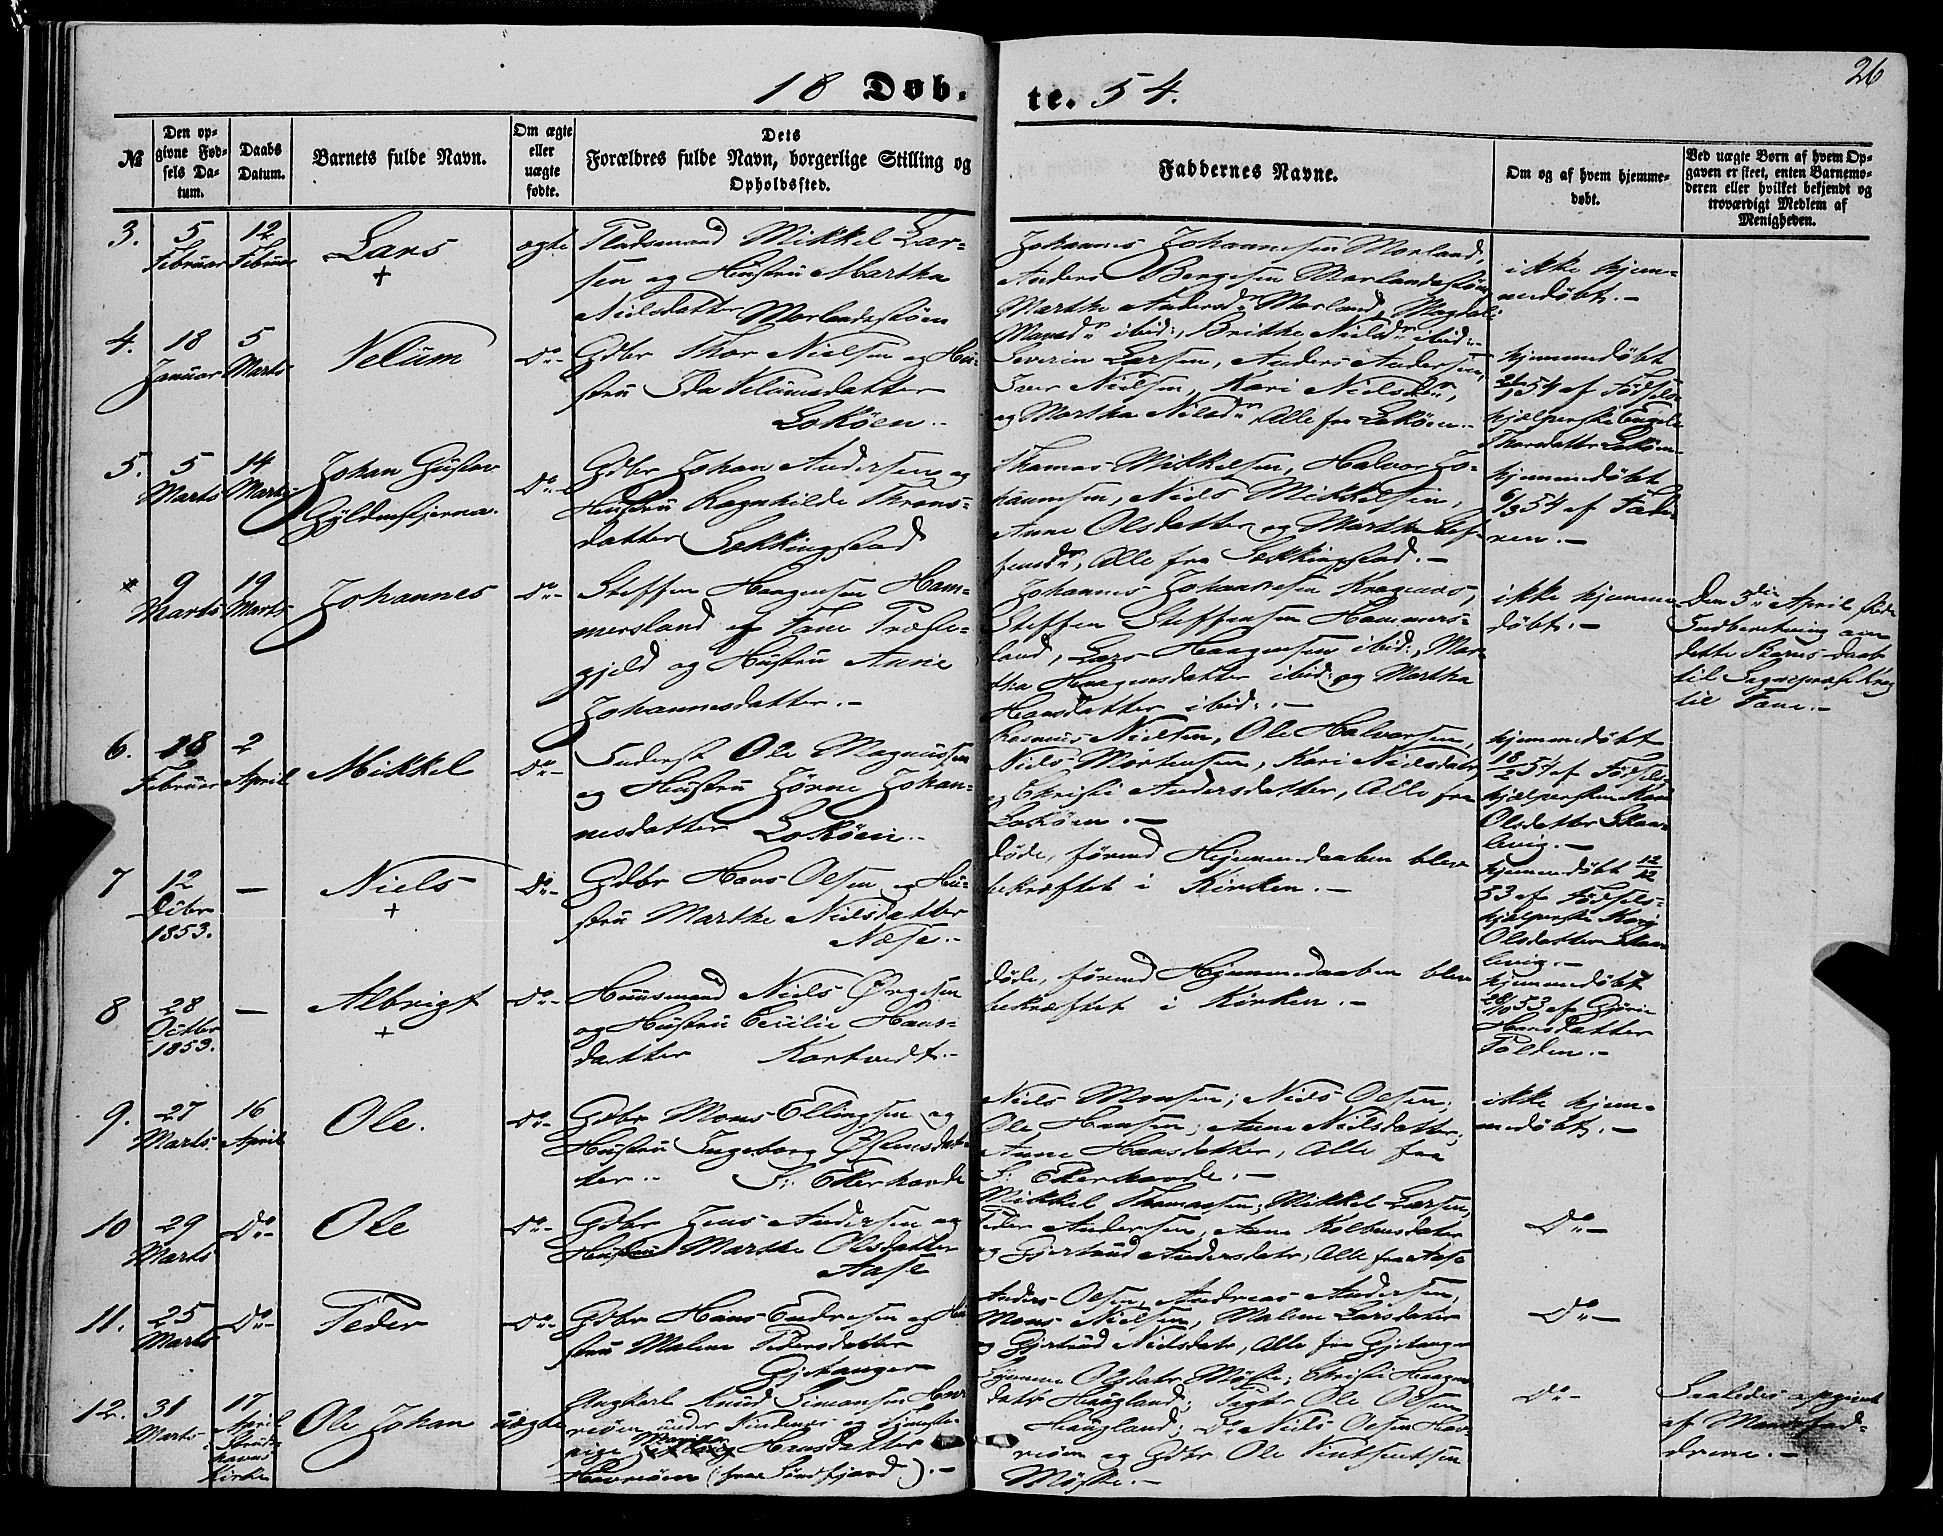 18 Døb-
te. 54.
26
№
Den op-
givne Fød-
sels Da-
tum.
Daabs
Datum.
Barnets fulde Navn.
Om ægte
eller
uægte
fødte.
Dets
Forældres fulde Navn, borgerlige Stilling og
Opholdssted.
Faddernes Navne.
Om og af hvem hjemme-
døbt.
Ved uægte Børn af hvem Op-
gaven er skeet, enten Barnemo-
deren eller hvilket bekjendt og
troværdigt Medlem af
Menigheden.
3.
5
Februar
12
Februar
Lars
+
ægte
Pladsmand Mikkel Lar-
sen og Hustru Martha
Nielsdatter Morlandsstøen
Johannes Johannesen Morland,
Anders Bergesen Morlandsstøen
Marthe Andersdr Morland, Magdali
Monsdr ibid:, Brithe Nielsdr ibid:
ikke hjem-
medøbt.-
4.
18
Januar
5
Marts
Velum
Do-
Gdbr Thor Nielsen og Hu-
stru Ida Velumsdatter
Lokøen.-
Severin Larsen, Anders Andersen,
Iver Nielsen, Kari Nielsdr,
og Martha Nielsdr, Alle fra Lokøen.-
hjemmedøbt
54 af Fødsels-
hjælperske Engele
Thorsdatter Lokøen
5.
5
Marts
14
Marts
Johan Gustav
Gyldenstjerna.
Do-
Gdbr Johan Andersen og
Hustru Ragnhilde Throns-
datter Søkkingstad
Thomas Mikkelsen, Halvor Jo-
hannesen, Niels Mikkelsen,
Anne Olsdatter og Martha Stef-
fensdr, Alle fra Søkkingstad.-
hjemmedøbt
6/3 54 af Fade-
ren.-
*
9
Marts
19
Marts
Johannes
Do-
Steffen Haagensen Ham-
mersland af Fane Præste-
gjeld og Hustru Anne
Johannesdatter.-
Johannes Johannesen Kragenæs,
Steffen Steffensen Hammers-
land, Lars Haagensen ibid:, Mar-
tha Haagensdatter ibid: og Martha
Hansdatter ibid:.-
ikke hjemme
døbt.-
Den 3die April skede
Indberetning om
dette Barns Daab
til Sogneprest Krog
til Fane.-
6.
18
Februar
2
April
Mikkel
Do-
Inderst Ole Magnussen
og Hustru Jørne Johan-
nesdatter Lokøen.-
Rasmus Nielsen, Ole Halvorsen,
Niels Mortensen, Kari Nielsdatr
og Christi Andersdatter, Alle fra
Lokøen.-
hjemmedøbt
18/2 54 af Fødsels-
hjælpersken Kari
Olsdatter Skaa-
levig.-
7
12
Decbr
1853.
-
Niels
+
Do-
Gdbr Hans Olsen og Hu-
stru Marthe Nielsdatter
Næse.-
døde, førend Hjemmedaaben blev
bekræftet i Kirken.-
hjemmedøbt 12/12
53 af Fødsels-
hjælperske Kari
Olsdatter Skaa
levig.-
8
28
Octbr
1853.
-
Albrigt
+
Do-
Huusmand Niels Ørgesen
og Hustru Cecilie Hans-
datter Kortvedt.-
døde, førend Hjemmedaaben blev
bekræftet i Kirken.-
hjemmedøbt
28/10 53 af Gjøri
Hansdatter
Tolden.-
9.
27
Marts
16
April
Ole.
Do-
Gdbr Mons Ellingsen og
Hustru Ingeborg Østensdat-
ter.- S: Ekerhovde
Niels Monsen; Niels Olsen;
Ole Hansen; Anne Nielsdatter;
Anne Hansdatter, Alle fra
S: Ekerhovde.-
ikke hjem-
medøbt.-
10
29
Marts
Do-
Ole
Do-
Gdbr Jens Andersen og
Hustru Marthe Olsdatter
Aase
Mikkel Thomassen; Mikkel Larsen,
Peder Andersen, Anne Kolbensdatter
og Gjertrud Andersdatr, Alle fra Aase
Do-
11.
25
Marts
Do-
Peder
Do-
Gdbr Hans Endresen og Hu
stru Malene Pedersdatter
Gjetanger
Anders Olsen, Andreas Andersen,
Mons Nielsen, Malene Larsdatter
og Gjertrud Nielsdatr, Alle fra Gjetanger
Do-
12.
31
Marts
17
April
Kirke
Ole Johan
uægte
Ungkarl Knud Simonsen Hav
reøen under Kindenes og Tjeneste-
pige Hansdatter
Havreøen (fra Søndfjord).-
Olsdatr Møste; Christi Haagens
datr Haugland; Ole Olsen
Haugland; Do Niels Olsen Hav-
reøen og Gdbr Ole Vintsentsen
Møste.-
Do-
Saaledes opgivet
af Mandsfad-
drene.-